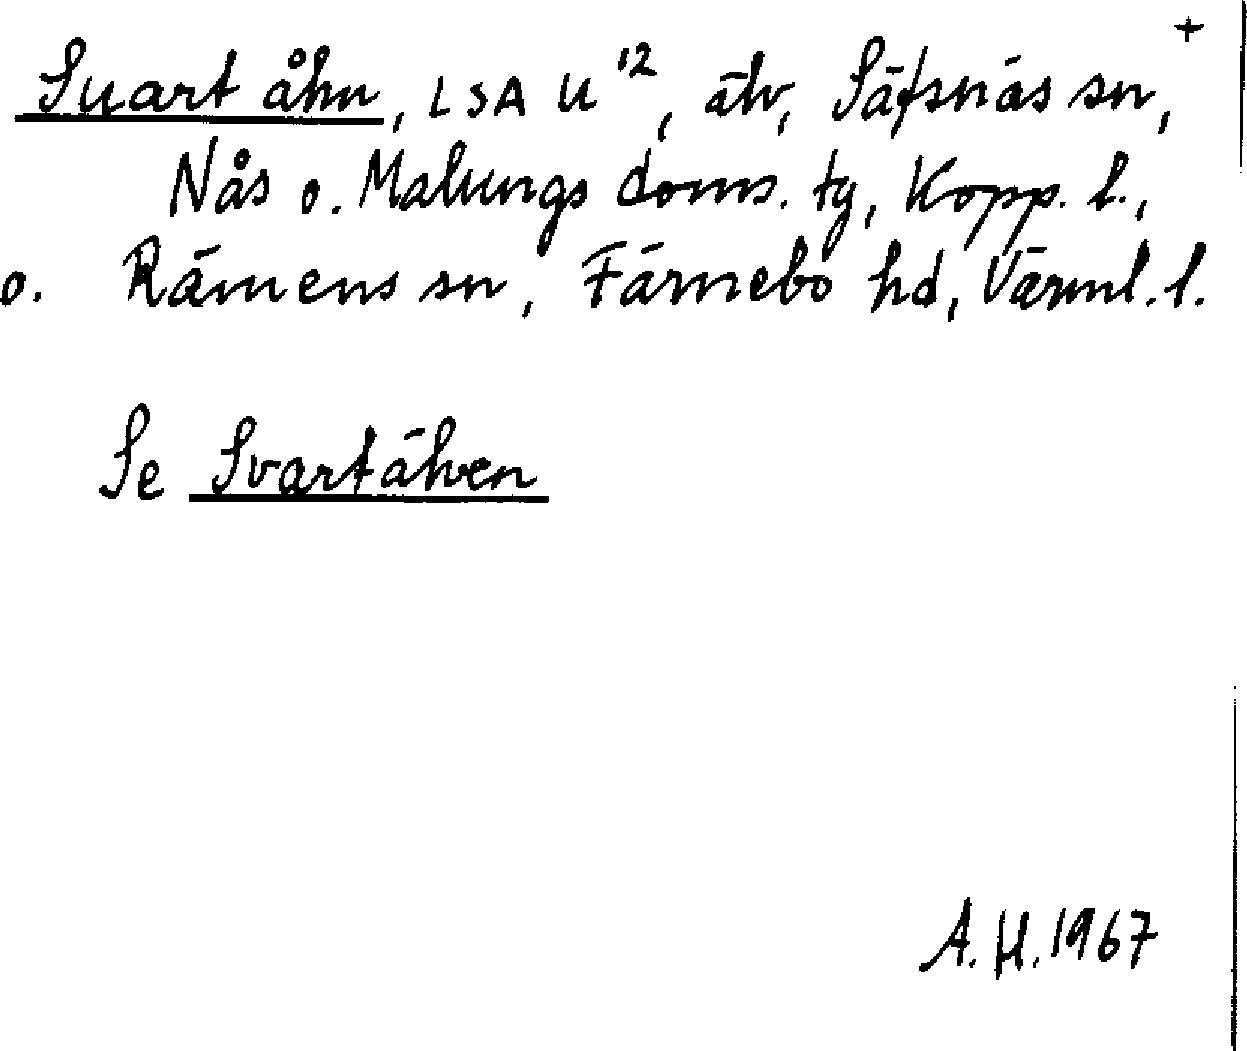 +
Suart åhn, LSA U '2, älv, Säfsnäs sn,
Nås o. Malungs doms. tg, Kopp. l.,
o. Rämens sn, Färnebo hd, Värml. l.
Se Svartälven
A. H. 1967